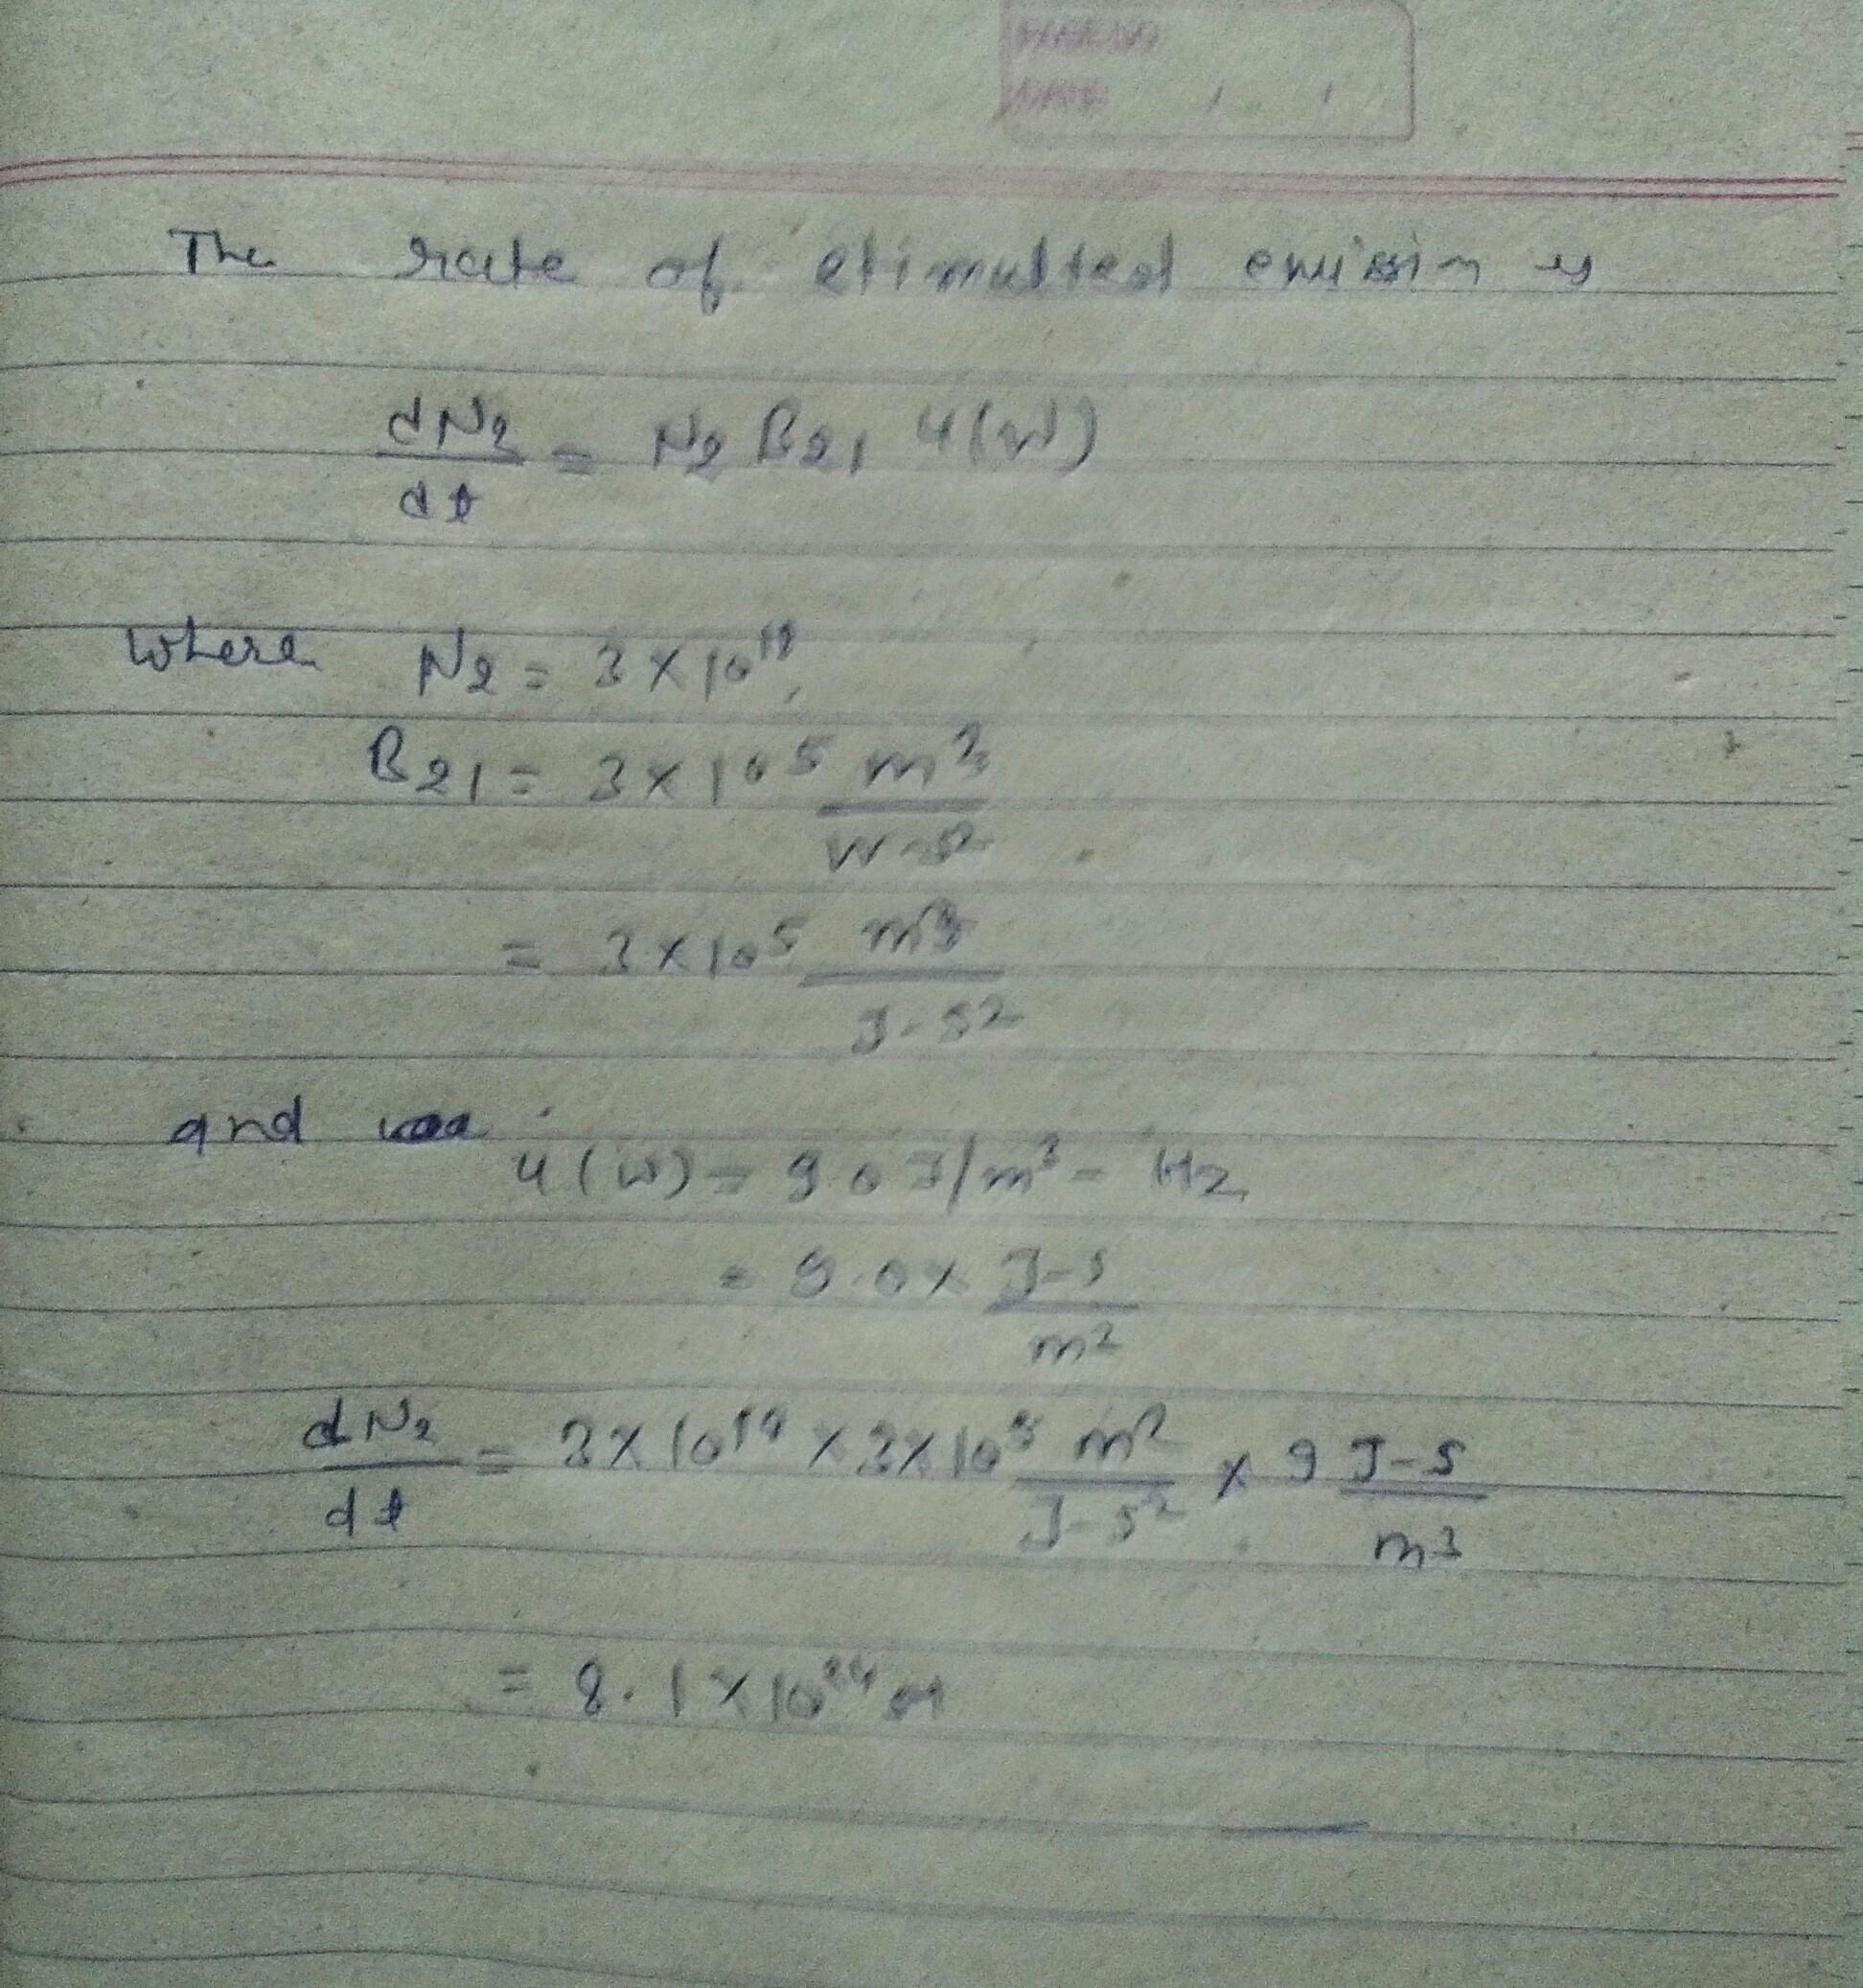 DATE / /
The rate of stimulted emissin is
dN2/dt = N2 B21 u(w)
where N2 = 3 × 10^19,
B21 = 3 × 10^5 m^3/W-s2
= 3 × 10^5 m^3/J-s2
and
u(w) = 9.0 J/m^3 - Hz
= 9.0 × J-s/m2
dN2/dt = 3 × 10^19 × 3 × 10^5 m^3/J-s^2 × 9 J-s/m3
= 8.1 × 10^24